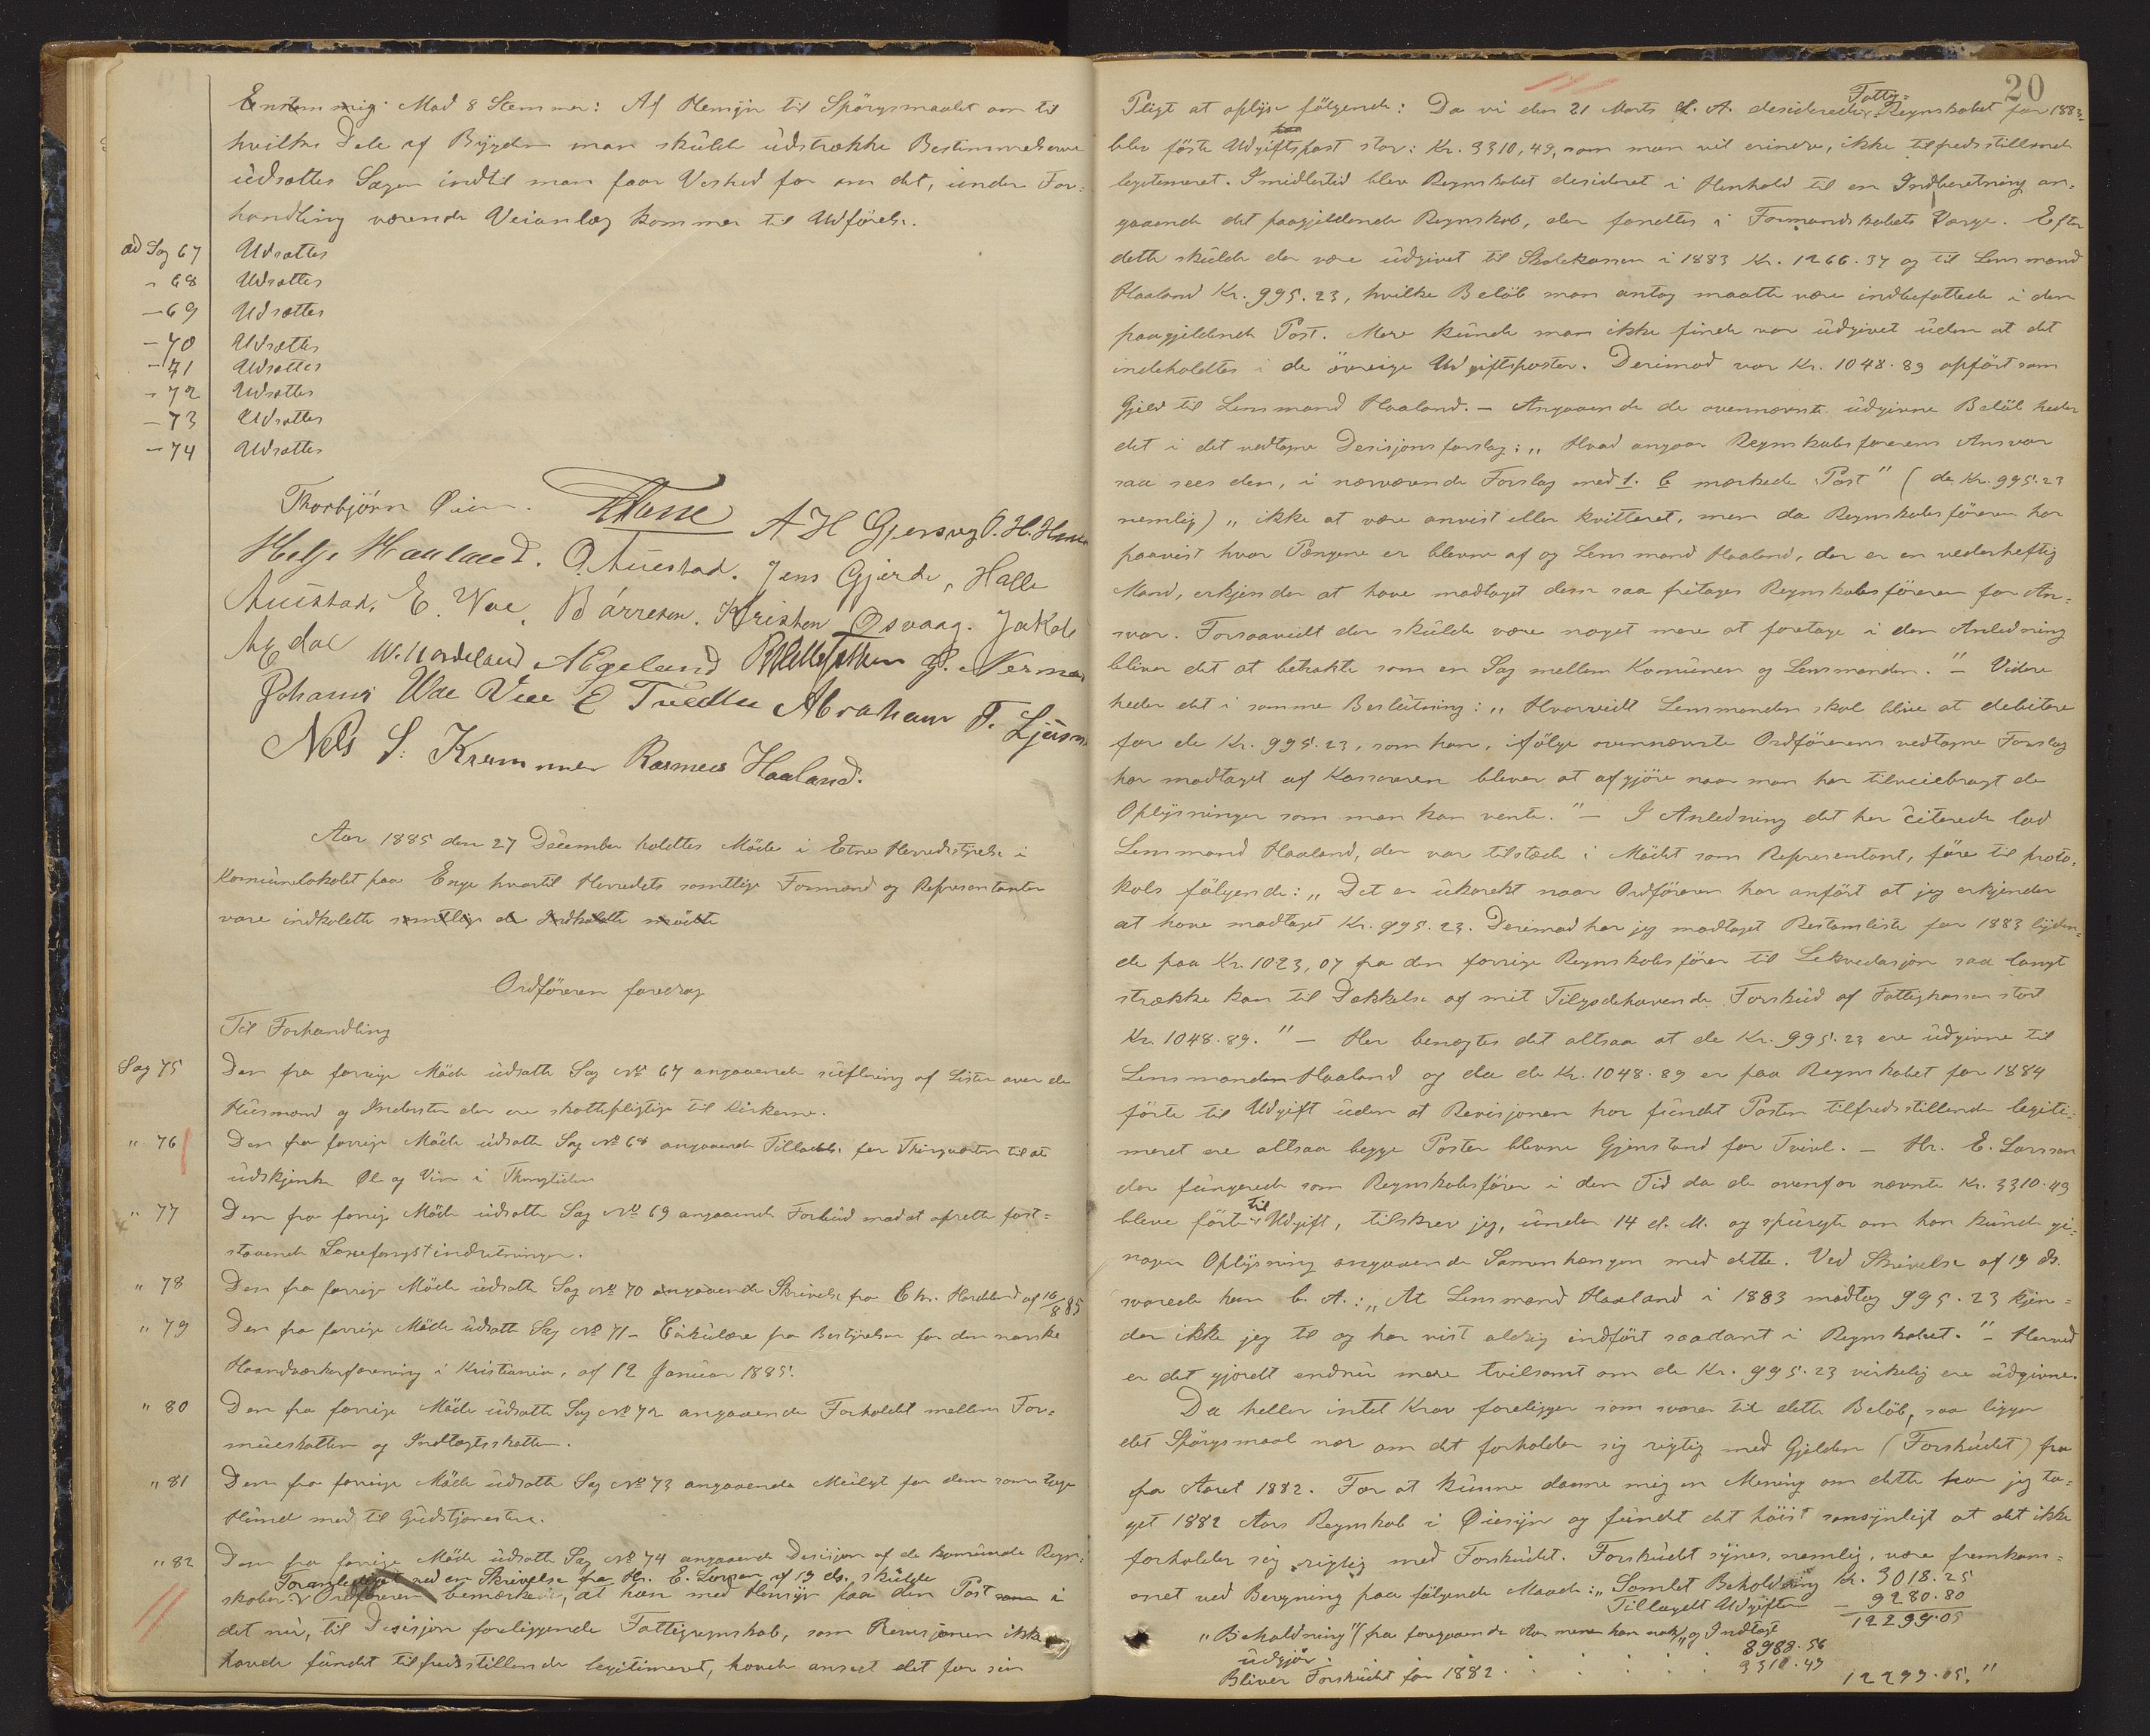 Enstemmig. Mod 8 Stemmer: Af Hensyn til Spörgsmaalet om til
hvilke Dele af Bygden man skulde udstrække Bestemmelserne
udsattes Sagen indtil man faar Vished for om det, under For-
handling værende Veianlæg kommer til Udförelse.
ad Sag 67 Udsættes
- 68 Udsættes
- 69 Udsættes
- 70 Udsættes
- 71 Udsættes
- 72 Udsættes
- 73 Udsættes
- 74 Udsættes
Thorbjörn Øien. A H Gjersvig
Helje Haaland. O. Auestad. Jens Gjerde, Halle
Auestad, E. Vae, Börresen. Kristen Osvaag. Jakob
W. Nordeland A Egeland
Johans Wae E Tvedte Abraham T.
Nels S. Rasmus Haaland.
Aar 1885 den 27 December holdtes Möde i Etne Herredstyrelse i
Komunelokalet paa Enge hvortil Herredets samtlige Formænd og Repræsentanter
vare indkaldte samtlige de Indkaldte mödte
Ordföreren foredrog
Til Forhandling
Sag 75 Den fra forrige Möde udsatte Sag № 67 angaaende righting af Lister over de
Husmænd og Inderster der ere skattepligtige til Kirkerne.
" 76 Den fra forrige Möde udsatte Sag № 68 angaaende Tilladelse for Thingværten til at
udskjænke Øl og Vin i Thingtiden
" 77 Den fra forrige Möde udsatte Sag № 69 angaaende Forbud mod at oprette fast-
staaende Laxefangstindretninger.
" 78 Den fra forrige Möde udsatte Sag № 70 angaaende Skrivelse fra Chr. Hardeland af 16/8 85
" 79 Den fra forrige Möde udsatte Sag № 71 - Cirkulære fra Bestyrelsen for den norske
Haandværkerforening i Kristiania, af 12 Januar 1885.
" 80 Den fra forrige Möde udsatte Sag № 72 angaaende Forholdet mellem For-
mueskatten og Indtægtsskatten.
" 81 Den fra forrige Möde udsatte Sag № 73 angaaende Mulkt for dem som tage
Hund med til Gudstjenesten.
" 82 Den fra forrige Möde udsatte Sag № 74 angaaende Desisjon af de komunale Regn-
Foranlediget ved en Skrivelse fra Hr. E. Larsen af 19 ds. skulde
skaber. Ordföreren bemærkede, at han med Hensyn paa den Post som i
det nu, til Desisjon foreliggende Fattigregnskab, som Revisjonen ikke
havde fundet tilfredsstillende legitimeret, havde anseet det for sin
20
Pligt at oplyse fölgende: Da vi den 21 Marts d. A. desiderede Fattig-Regnskabet for 1883,
blev förste Udgiftspost stor: Kr. 3310,49, som man vil erindre, ikke tilfredsstillende
legitimeret. Imidlertid blev Regnskabet desideret i Henhold til en Indberetning an-
gaaende det paagjældende Regnskab, der fandtes i Formandskabets Værge. Efter
dette skulde der være udgivet til Skolekassen i 1883 Kr. 1266.37 og til Lensmand
Haaland Kr. 995.23, hvilke Belöb man antog maatte være indbefattede i den
paagjældende Post. Mere kunde man ikke finde var udgivet uden at det
indeholdtes i de övrige Udgiftsposter. Derimod var Kr. 1048.89 opfört som
Gjeld til Lensmand Haaland. - Angaaende de ovennævnte udgivne Belöb heder
det i det vedtagne Desisjonsforslag: „Hvad angaar Regnskabsförerens Ansvar
saa sees den, i nærværende Forslag med 1. b mærkede Post" (de Kr. 995.23
nemlig) „ikke at være anvist eller kvitteret, men da Regnskabsföreren har
paavist hvor Pengene er blevne af og Lensmand Haaland, der er en vederheftig
Mand, erkjender at have modtaget dem saa fritages Regnskabsföreren for An-
svar. Forsaavidt der skulde være noget mere at foretage i den Anledning
bliver det at betrakte som en Sag mellem Komunen og Lensmanden." - Videre
heder det i samme Beslutning: „Hvorvidt Lensmanden skal blive at debitere
for de Kr. 995.23, som han, ifölge ovennævnte Ordförerens vedtagne Forslag
har modtaget af Kassereren bliver at afgjöre naar man har tilveiebragt de
Oplysninger som man kan vente." - I Anledning det her citerede lod
Lensmand Haaland, der var tilstede i Mödet som Representant, före til proto-
kols fölgende: „Det er ukorekt naar Ordföreren har anfört at jeg erkjender
at have modtaget Kr. 995.23. Derimod har jeg modtaget Restanseliste for 1883 lyden-
de paa Kr. 1023,07 fra den forrige Regnskabsförer til Lekvedasjon saa langt
strække kan til Dækkelse af mit Tilgodehavende Forskud af Fattigkassen stort
Kr. 1048.89." - Her benægtes det altsaa at de Kr. 995.23 ere udgivne til
Lensmanden Haaland og da de Kr. 1048.89 er paa Regnskabet for 1884
förte til Udgift uden at Revisjonen har fundet Posten tilfredsstillende legiti-
meret ere altsaa begge Poster blevne Gjenstand for Tvivl. - Hr. E. Larsson
der fungerede som Regnskabsförer i den Tid da de ovenfor nævnte Kr. 3310.49
bleve förte til Udgift, tilskrev jeg, under 14 d. M. og spurgte om han kunde gi-
nogen Oplysning angaaende Sammenhængen med dette. Ved Skrivelse af 19 ds.
svarede han b. A.: „At Lensmand Haaland i 1883 modtog 995.23 kjen-
der ikke jeg til og har vist aldrig indfört saadant i Regnskabet." - Herved
er det gjordt endnu mere tvilsomt om de Kr. 995.23 virkelig ere udgivne.
Da heller intet Krav foreligger som svarer til dette Belöb, saa ligger
det Spörgsmaal nær om det forholder sig rigtig med Gjelden (Forskudet) fra
fra Aaret 1882. For at kunne danne mig en Mening om dette har jeg ta-
get 1882 Aars Regnskab i Øiesyn og fundet det höist sansynligt at det ikke
forholder sig rigtig med Forskudet. Forskudet synes, nemlig, være fremkom-
met ved Beregning paa fölgende Maade: „Samlet Beholdning Kr. 3018.25
Tillagdt Udgiften - 9280.80
12299.05
„Beholdning" (fra foregaaende Aar mener han nok) „og Indtægt
udgjör . . . . . . 8988.56
Bliver Forskudet for 1882 . . . . . 3310.49 12299.05."